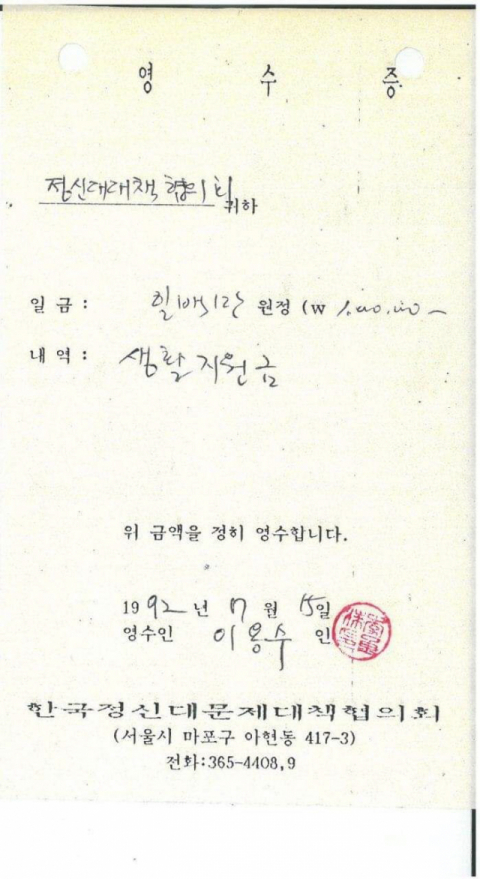 영 수 증
정신대대책 협의회 귀하
일 금 : 일백만 원정 (₩ 1,000,000 -
내 역 : 생활지원금
위 금액을 정히 영수합니다.
1992 년 7 월 15일
영수인 이용수 인
한국정신대문제대책협의회
(서울시 마포구 아현동 417-3)
전화:365-4408,9